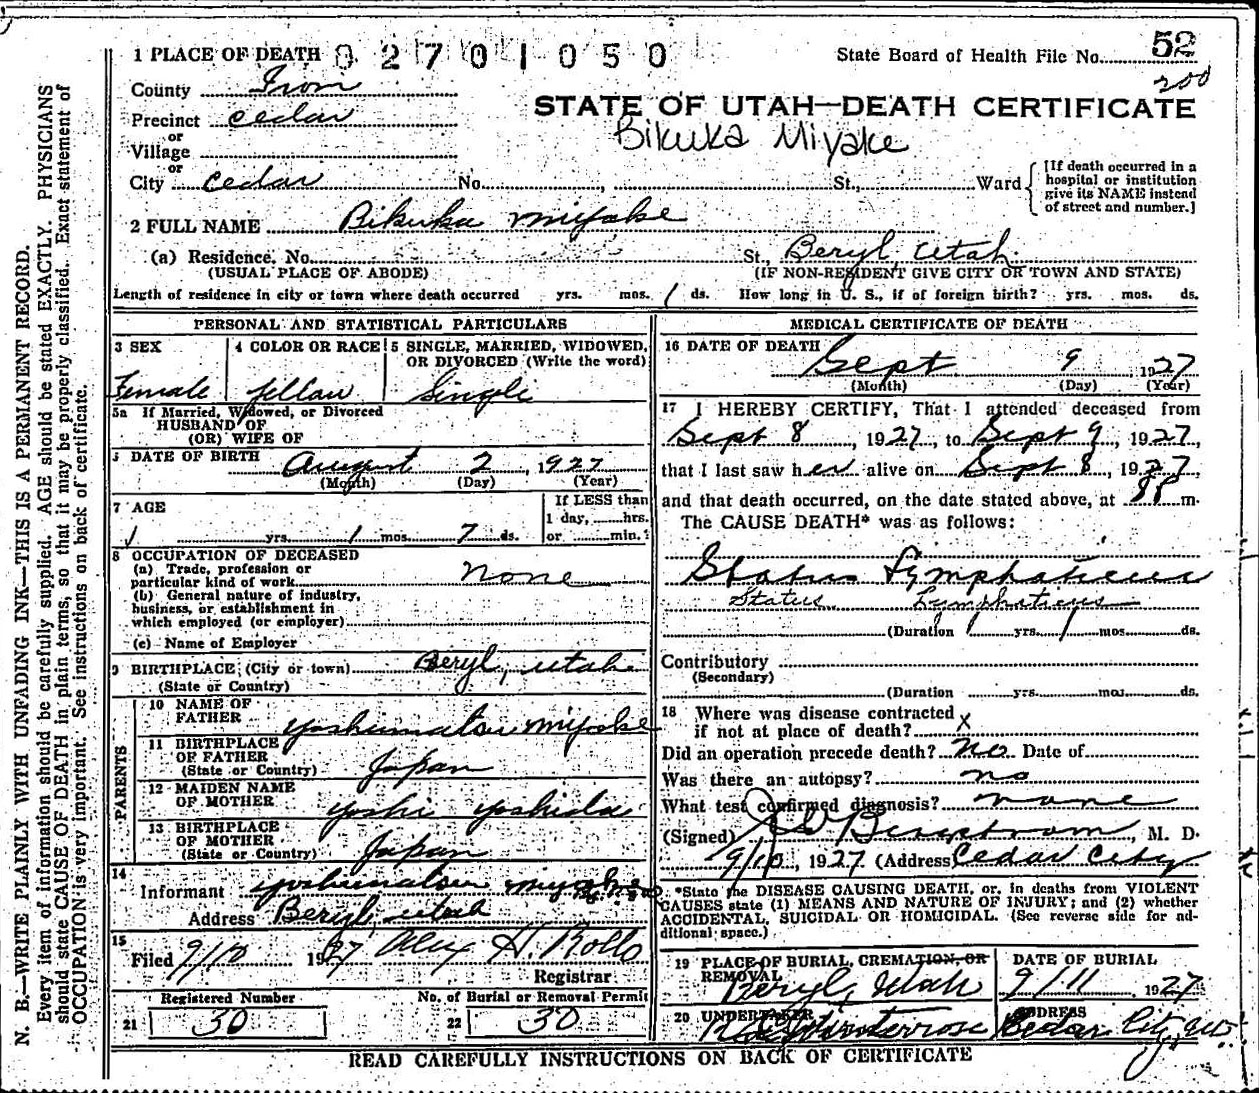 1 PLACE OF DEATH 0 2 7 0 1 0 5 0
State Board of Health File No. 52
200
County Iron
STATE OF UTAH—DEATH CERTIFICATE
Precinct Cedar
Bikuka Miyake
or
Village
or
City Cedar No. , St., Ward
[If death occurred in a
hospital or institution
give its NAME instead
of street and number.]
2 FULL NAME Bikuka Miyake
(a) Residence. No. St., Beryl, Utah.
(USUAL PLACE OF ABODE) (IF NON-RESIDENT GIVE CITY OR TOWN AND STATE)
Length of residence in city or town where death occurred yrs. mos. 1 ds. How long in U. S., if of foreign birth? yrs. mos. ds.
PERSONAL AND STATISTICAL PARTICULARS
3 SEX
Female
4 COLOR OR RACE
Yellow
5 SINGLE, MARRIED, WIDOWED,
OR DIVORCED (Write the word)
Single
5a If Married, Widowed, or Divorced
HUSBAND OF
(OR) WIFE OF
DATE OF BIRTH August 2, 1927
(Month) (Day) (Year)
7 AGE
yrs. 1 mos. 7 ds.
If LESS than
1 day, hrs.
or min.
8 OCCUPATION OF DECEASED
(a) Trade, profession or
particular kind of work None
(b) General nature of industry,
business, or establishment in
which employed (or employer)
(c) Name of Employer
9 BIRTHPLACE (City or town) Beryl, Utah
(State or Country)
PARENTS
10 NAME OF
FATHER Yoshumatsu Miyake
11 BIRTHPLACE
OF FATHER
(State or Country) Japan
12 MAIDEN NAME
OF MOTHER Yoshi Yoshida
13 BIRTHPLACE
OF MOTHER
(State or Country) Japan
14
Informant Yoshumatsu
Address Beryl, Utah
15
Filed 9/10 1927 Alex H. Rollo
Registrar
Registered Number
21 30
No. of Burial or Removal Permit
22 30
MEDICAL CERTIFICATE OF DEATH
16 DATE OF DEATH
Sept 9 1927
(Month) (Day) (Year)
17 I HEREBY CERTIFY, That I attended deceased from
Sept 8, 1927, to Sept 9, 1927,
that I last saw her alive on Sept 8, 1927
and that death occurred, on the date stated above, at m.
The CAUSE DEATH* was as follows:
Status Lymphaticus
Status Lymphaticus
(Duration yrs. 1 mos. ds.
Contributory
(Secondary)
(Duration yrs. mos. ds.
18 Where was disease contracted
if not at place of death? x
Did an operation precede death? No Date of
Was there an autopsy? no
What test confirmed diagnosis? none
(Signed) Bergstrom, M. D.
9/10, 1927 (Address) Cedar City
*State the DISEASE CAUSING DEATH, or, in deaths from VIOLENT
CAUSES state (1) MEANS AND NATURE OF INJURY; and (2) whether
ACCIDENTAL, SUICIDAL OR HOMICIDAL. (See reverse side for ad-
ditional space.)
19 PLACE OF BURIAL, CREMATION, OR
REMOVAL
Beryl, Utah
DATE OF BURIAL
9/11 1927
20 UNDERTAKER
ADDRESS
Cedar City,
READ CAREFULLY INSTRUCTIONS ON BACK OF CERTIFICATE
N. B.—WRITE PLAINLY WITH UNFADING INK—THIS IS A PERMANENT RECORD.
Every item of information should be carefully supplied. AGE should be stated EXACTLY. PHYSICIANS
should state CAUSE OF DEATH in plain terms, so that it may be properly classified. Exact statement of
OCCUPATION is very important. See instructions on back of certificate.